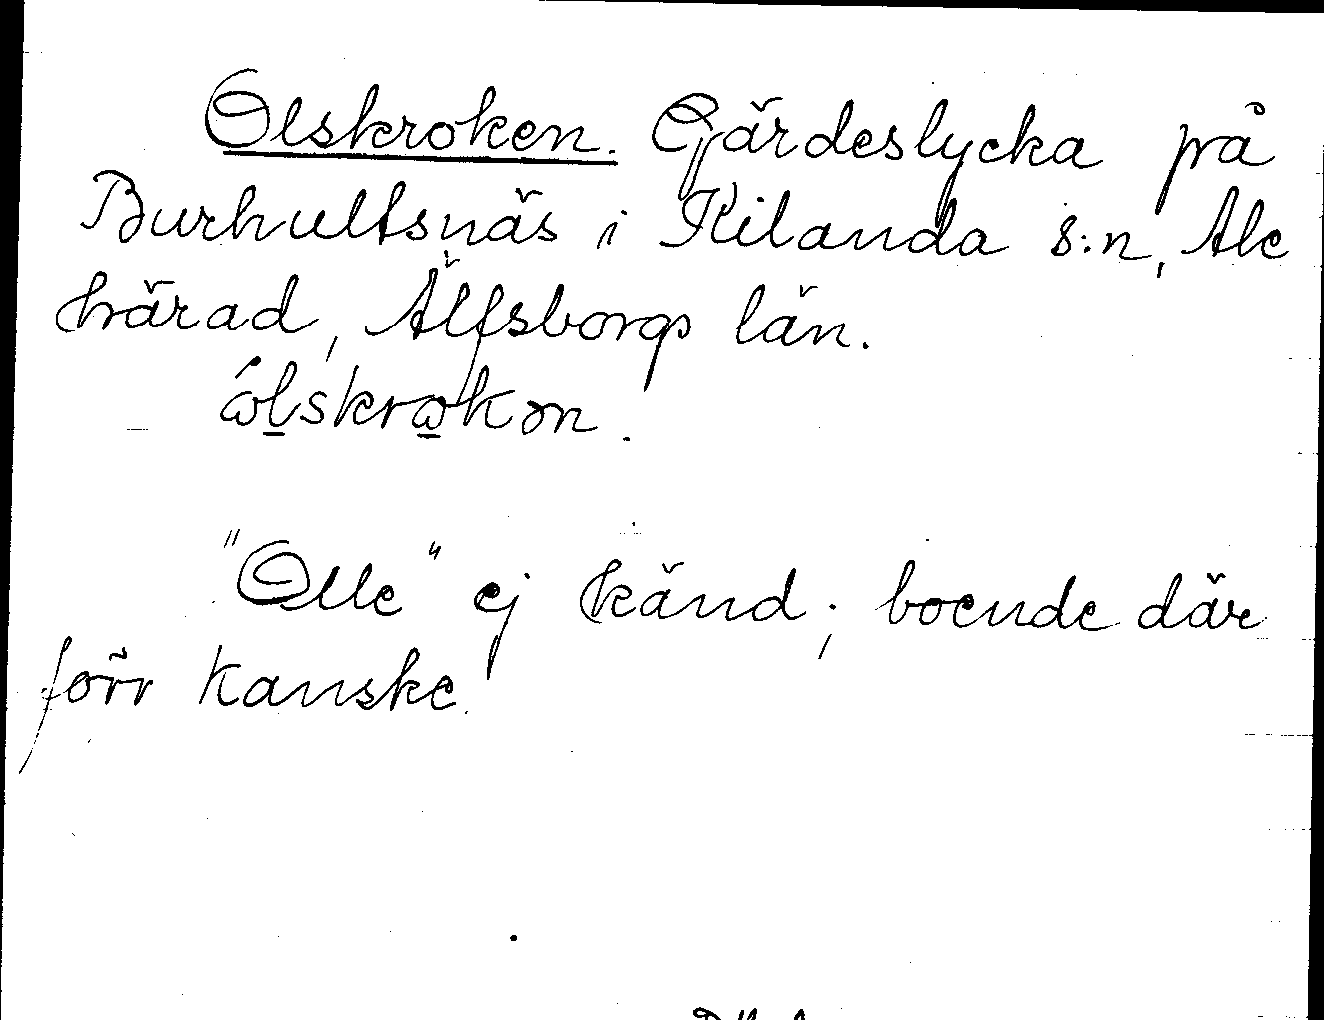 Olskroken. Gärdeslycka på
Burhultsnäs i Kilanda s:n, Ale
härad, Älfsborgs län.
ólskrokon.
"Olle" ej känd; boende där
förr kanske.